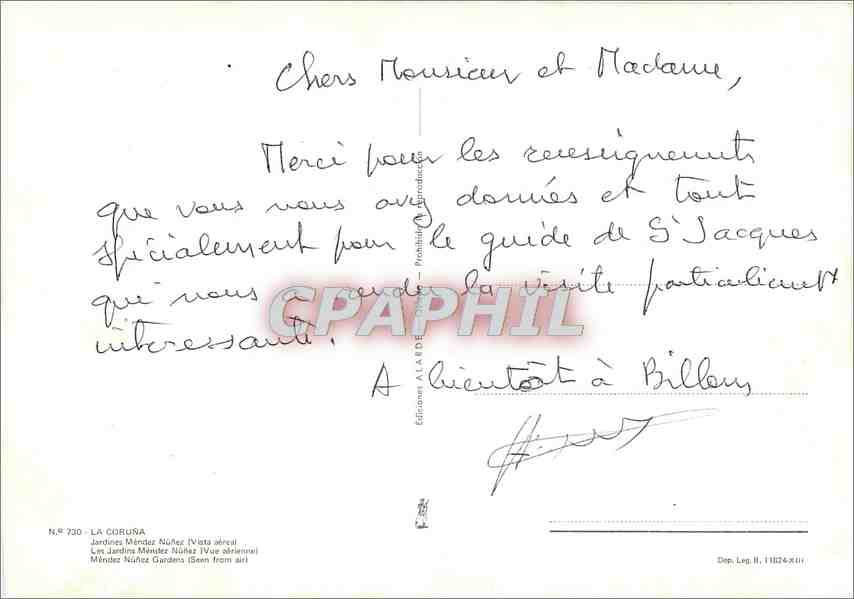 Chers Monsieur et Madame,
Merci pour les renseignements
que vous nous avez données et tout
spécialement pour le guide de St Jacques
qui nous a rendu la visite particulièrement
intéressante.
A bientôt à Billom
CPAPHIL
Ediciones ALARDE - Prohibida la reproducción
N.º 730 - LA CORUÑA
Jardines Méndez Núñez (Vista aérea)
Les Jardins Méndez Núñez (Vue aérienne)
Méndez Núñez Gardens (Seen from air)
Dep. Leg. B. 11824-XIII